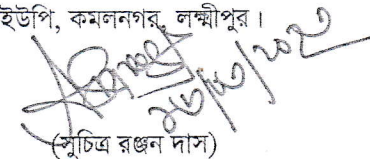 ইউপি, কমলনগর, লক্ষ্মীপুর।
(সুচিত্র রঞ্জন দাস)